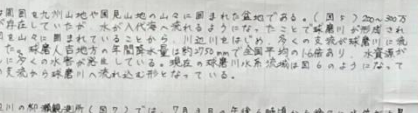 周囲を九州山地や国見山地の山々に囲まれた盆地である。(図5) 200~300万
存在していたが、水が八代海へ流れるようになったことで球磨川が形成され
を山々に囲まれていることから、川辺川をはじめ、多くの支流が球磨川に流
た。球磨人吉地方の年間降水量は約2750mmで全国平均の1.6倍あり、水資源が
に多くの水害が発生している。現在の球磨川水系流域は図6のようになって
支流から球磨川へ流れ込む形となっている。
川の 観測所(図7)では、7月